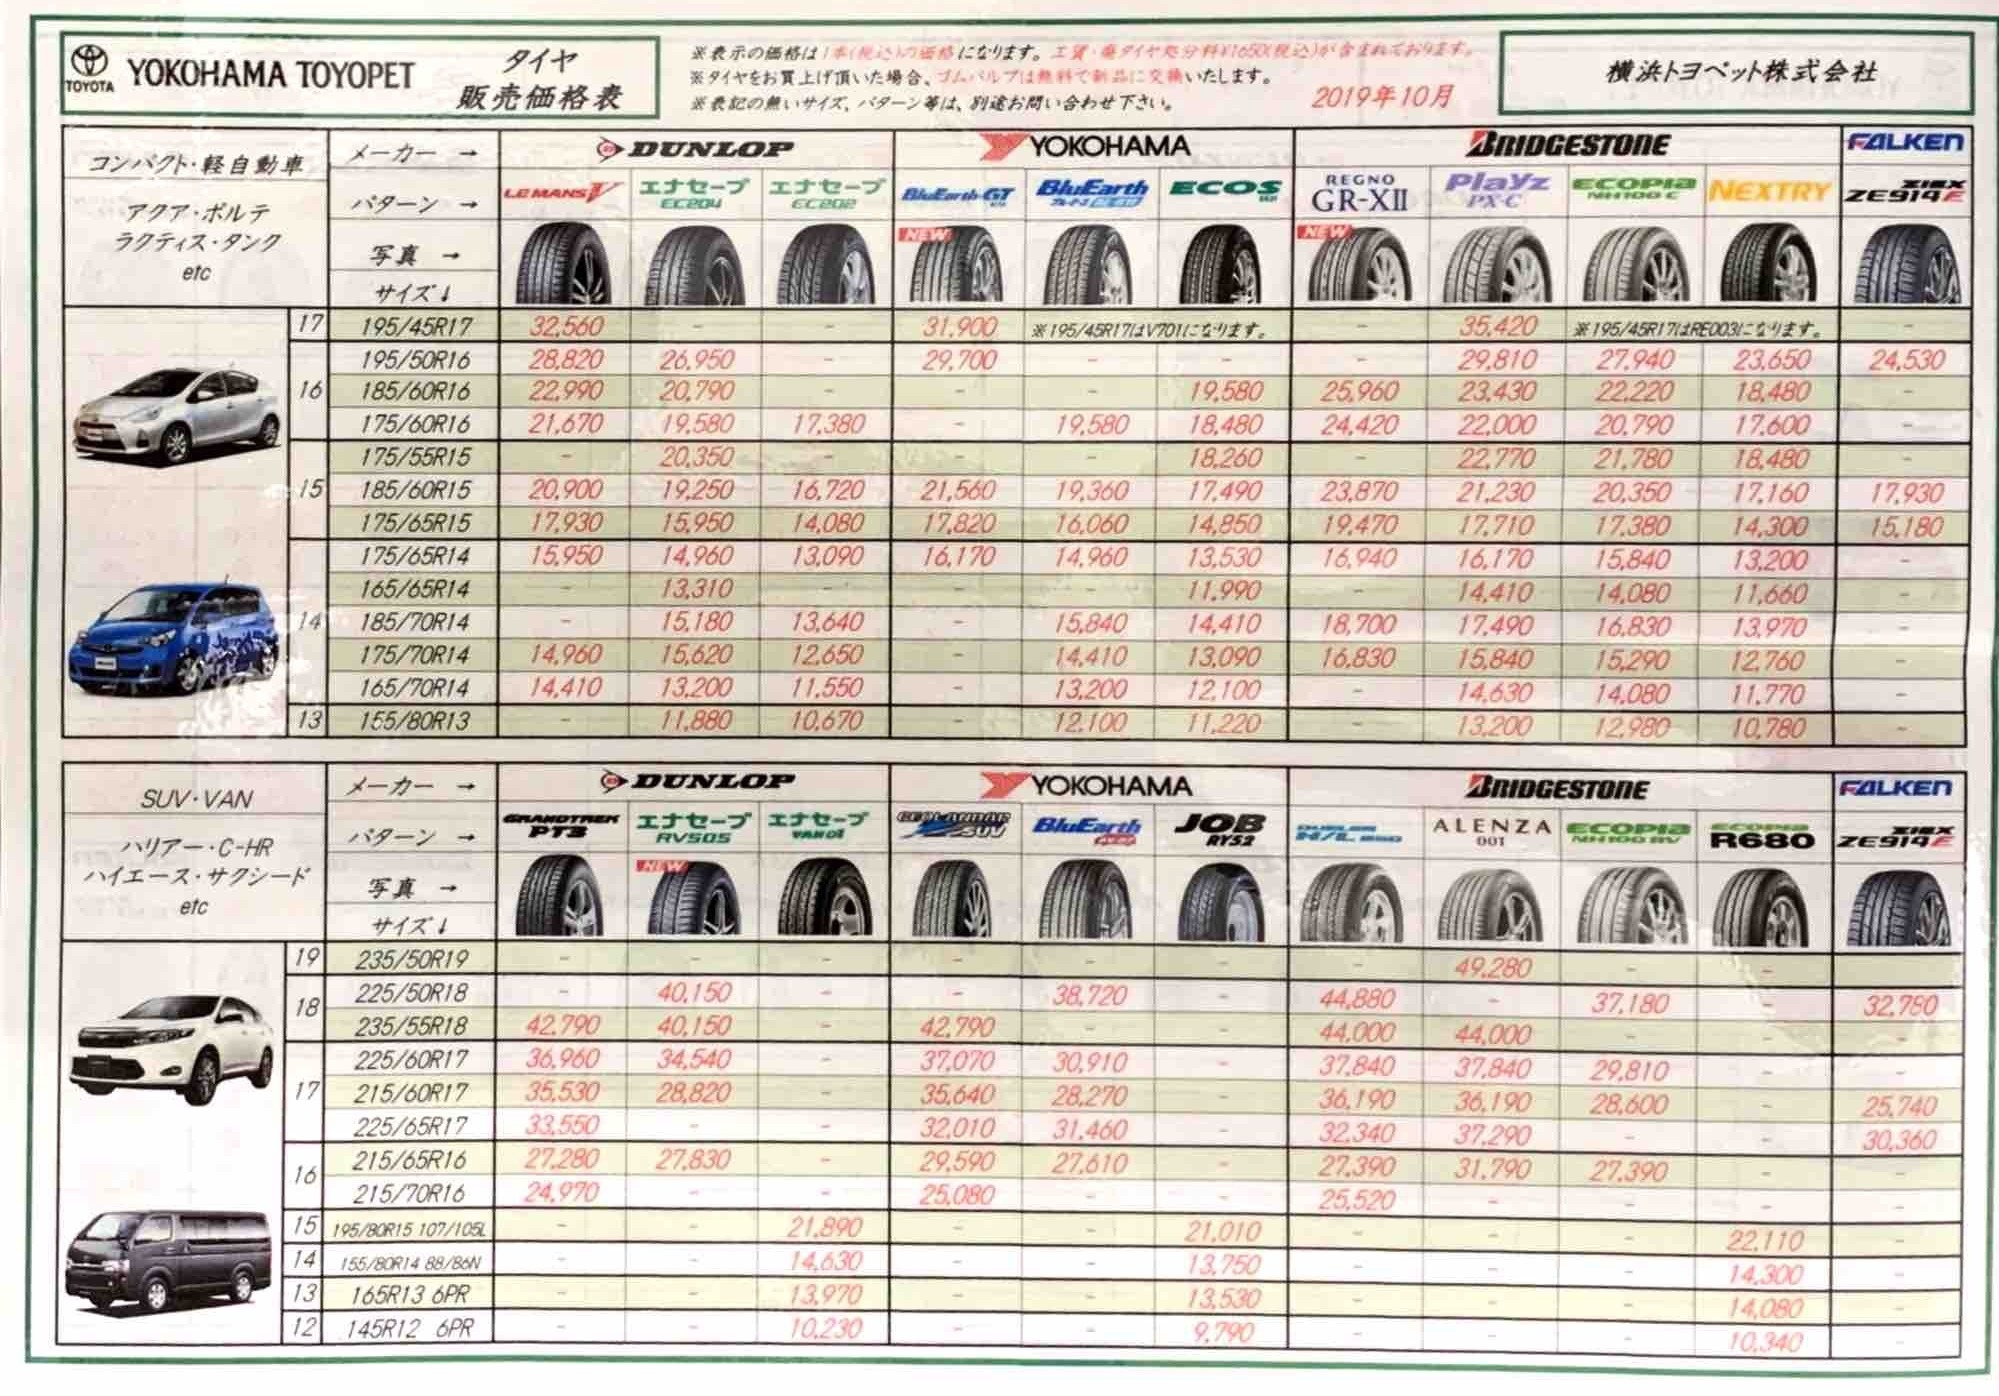 TOYOTA YOKOHAMA TOYOPET タイヤ 販売価格表
※表示の価格は1本(税込)の価格になります。工賃・廃タイヤ処分料¥1650(税込)が含まれております。
※タイヤをお買上げ頂いた場合、ゴムバルブは無料で新品に交換いたします。
※表記の無いサイズ、パターン等は、別途お問い合わせ下さい。
2019年10月
横浜トヨペット株式会社
コンパクト・軽自動車 メーカー → DUNLOP YOKOHAMA BRIDGESTONE FALKEN
アクア・ポルテ ラクティス・タンク etc
パターン → LE MANS V エナセーブ EC204 エナセーブ EC202 BluEarth-GT BluEarth ECOS REGNO GR-XII Playz PX-C ECOPIA NH100 C NEXTRY ZIEX ZE914F
写真 → NEW NEW
サイズ↓
17 195/45R17 32,560 - - 31,900 ※195/45R17はV701になります。 - 35,420 ※195/45R17はRE003になります。 -
16 195/50R16 28,820 26,950 - 29,700 - - - 29,810 27,940 23,650 24,530
185/60R16 22,990 20,790 - - - 19,580 25,960 23,430 22,220 18,480 -
175/60R16 21,670 19,580 17,380 - 19,580 18,480 24,420 22,000 20,790 17,600 -
15 175/55R15 - 20,350 - - - 18,260 - 22,770 21,780 18,480 -
185/60R15 20,900 19,250 16,720 21,560 19,360 17,490 23,870 21,230 20,350 17,160 17,930
175/65R15 17,930 15,950 14,080 17,820 16,060 14,850 19,470 17,710 17,380 14,300 15,180
14 175/65R14 15,950 14,960 13,090 16,170 14,960 13,530 16,940 16,170 15,840 13,200 -
165/65R14 - 13,310 - - - 11,990 - 14,410 14,080 11,660 -
185/70R14 - 15,180 13,640 - 15,840 14,410 18,700 17,490 16,830 13,970 -
175/70R14 14,960 15,620 12,650 - 14,410 13,090 16,830 15,840 15,290 12,760 -
165/70R14 14,410 13,200 11,550 - 13,200 12,100 - 14,630 14,080 11,770 -
13 155/80R13 - 11,880 10,670 - 12,100 11,220 - 13,200 12,980 10,780 -
SUV・VAN メーカー → DUNLOP YOKOHAMA BRIDGESTONE FALKEN
ハリアー・C-HR ハイエース・サクシード etc
パターン → GRANDTREK PT3 エナセーブ RV505 エナセーブ VAN01 GEOLANDAR SUV BluEarth JOB RY52 DUELER H/L 850 ALENZA 001 ECOPIA NH100 RV ECOPIA R680 ZIEX ZE914F
写真 → NEW
サイズ↓
19 235/50R19 - - - - - - - 49,280 - - -
18 225/50R18 - 40,150 - - 38,720 - 44,880 - 37,180 - 32,780
235/55R18 42,790 40,150 - 42,790 - - 44,000 44,000 - - -
17 225/60R17 36,960 34,540 - 37,070 30,910 - 37,840 37,840 29,810 - -
215/60R17 35,530 28,820 - 35,640 28,270 - 36,190 36,190 28,600 - 25,740
225/65R17 33,550 - - 32,010 31,460 - 32,340 37,290 - - 30,360
16 215/65R16 27,280 27,830 - 29,590 27,610 - 27,390 31,790 27,390 - -
215/70R16 24,970 - - 25,080 - - 25,520 - - - -
15 195/80R15 107/105L - - 21,890 - - 21,010 - - - 22,110 -
14 155/80R14 88/86N - - 14,630 - - 13,750 - - - 14,300 -
13 165R13 6PR - - 13,970 - - 13,530 - - - 14,080 -
12 145R12 6PR - - 10,230 - - 9,790 - - - 10,340 -